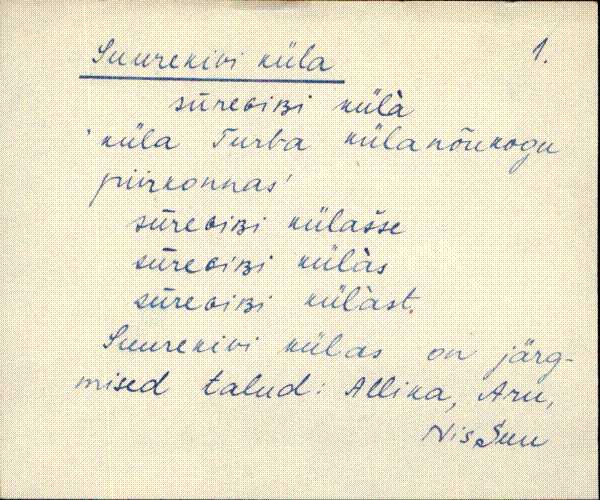 Suurekivi küla 1.
sūreɢiʙi külà
'küla Turba külanõukogu
piirkonnas'
sūreɢiʙi külàšse
sūreɢiʙi külàs
sūreɢiʙi külàst.
Suurekivi külas on järg-
mised talud: Allika, Aru,
Nis, Suu